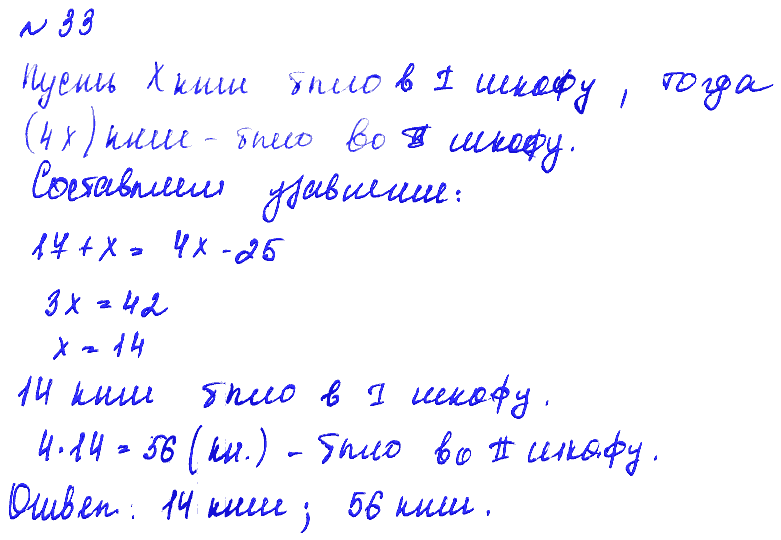 № 33
Пусть x книг было в I шкафу, тогда
(4x) книг - было во II шкафу.
Составляем уравнение:
17 + x = 4x - 25
3x = 42
x = 14
14 книг было в I шкафу.
4·14 = 56 (кн.) - было во II шкафу.
Ответ: 14 книг; 56 книг.